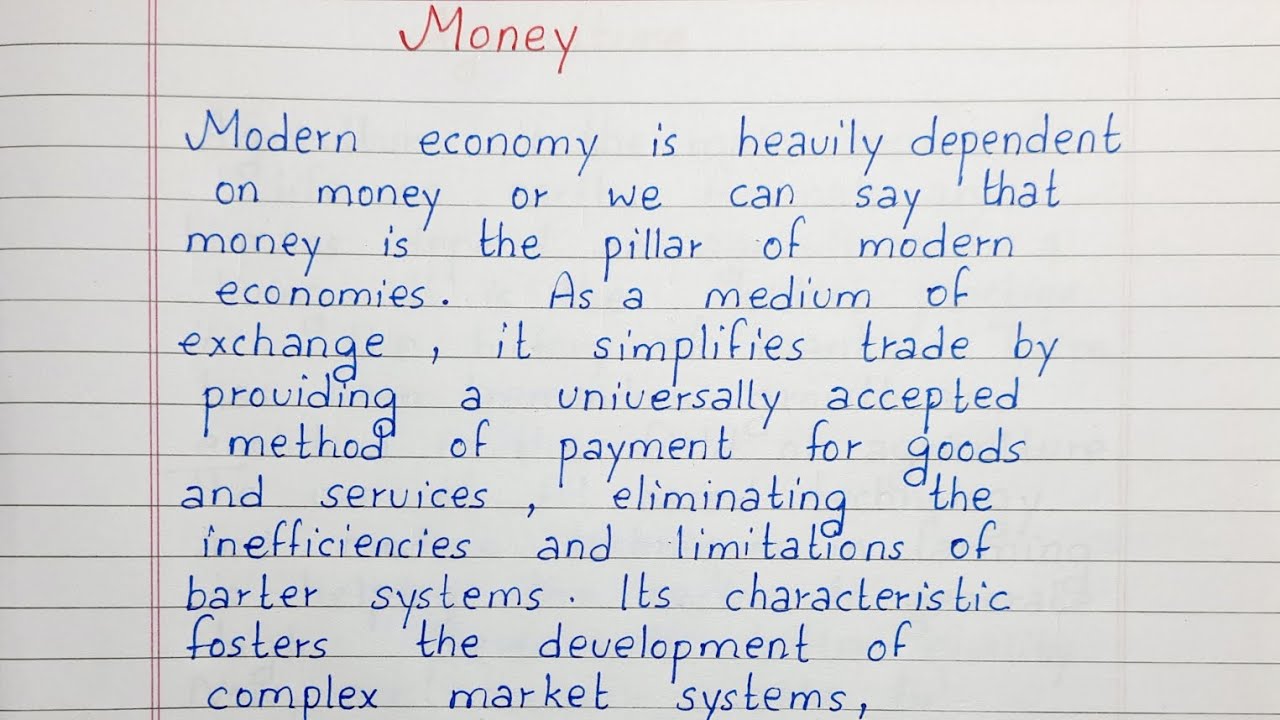 Money
Modern economy is heavily dependent
on money or we can say that
money is the pillar of modern
economies. As a medium of
exchange, it simplifies trade by
providing a universally accepted
method of payment for goods
and services, eliminating the
inefficiencies and limitations of
barter systems. Its characteristic
fosters the development of
complex market systems,